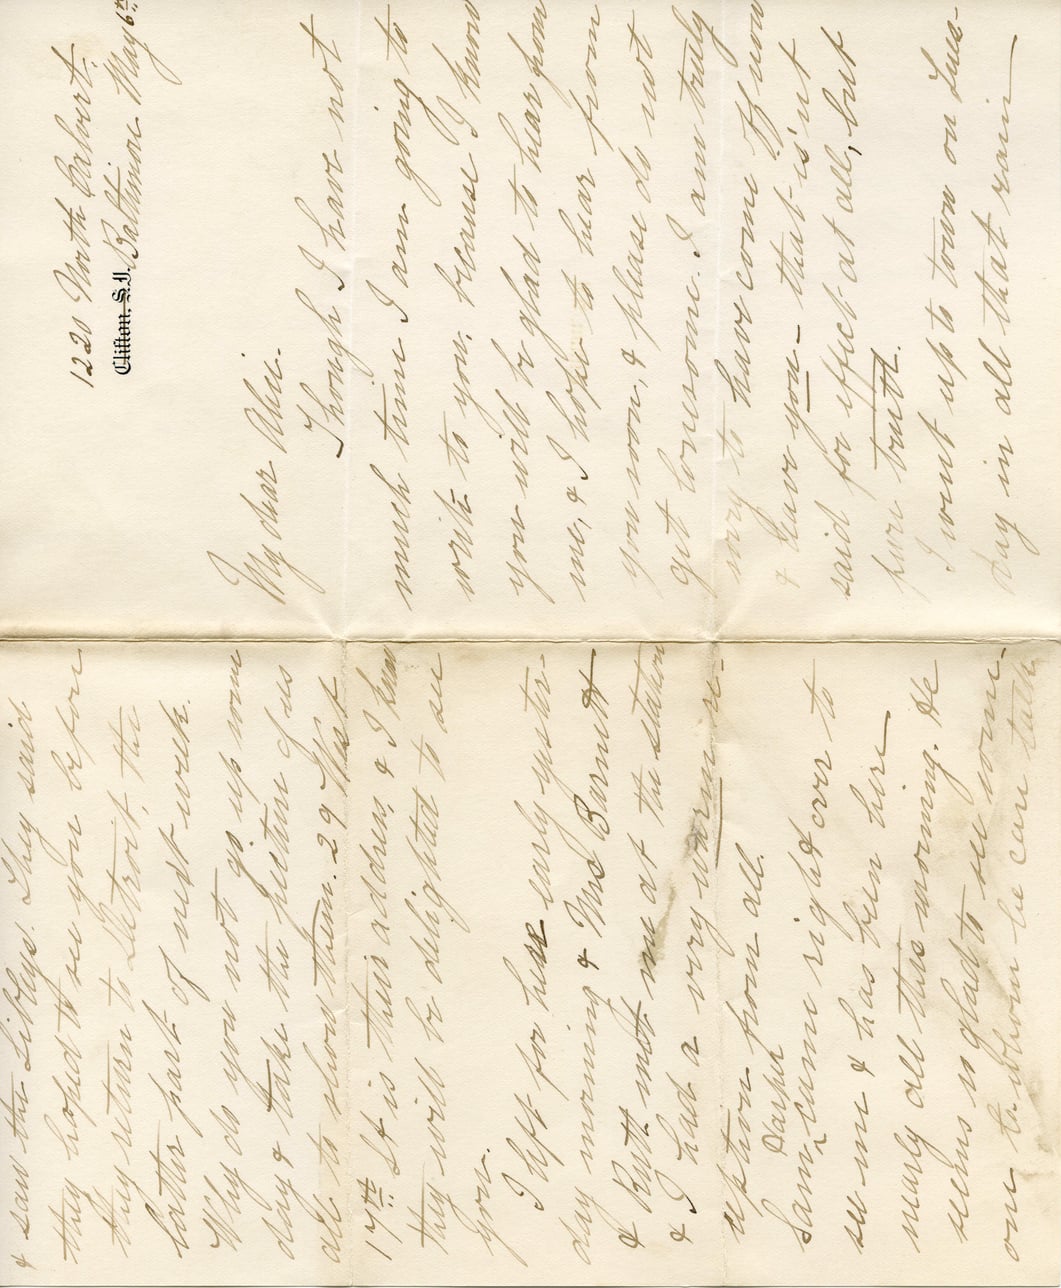 1220 North Calvert.
Clifton, S.I. Baltimore May 6th
My dear Alice.
Though I have not
much time I am going to
write to you, because I know
you will be glad to hear from
me, & I hope to hear from
you soon, & please do not
get lonesome. I am truly
sorry to have come off now
& leave you - that isn't
said for effect at all, but
pure truth.
I went up to town on Tues-
day in all that rain
& saw the Sibleys. They said
they hoped to see you before
they return to Detroit, the
latter part of next week.
Why do you not go up some
day & take the picture of us
all to show them. 29 West
17th. It is their address, & I know
they will be delighted to see
you.
I left for here early yester-
day morning & Mrs Barnett
& Ruth met me at the station
& I had a very warm re-
ption from all.
Sam Harper came right over to
see me & has been here
nearly all this morning. He
seems so glad to see some-
one to whom he can talk